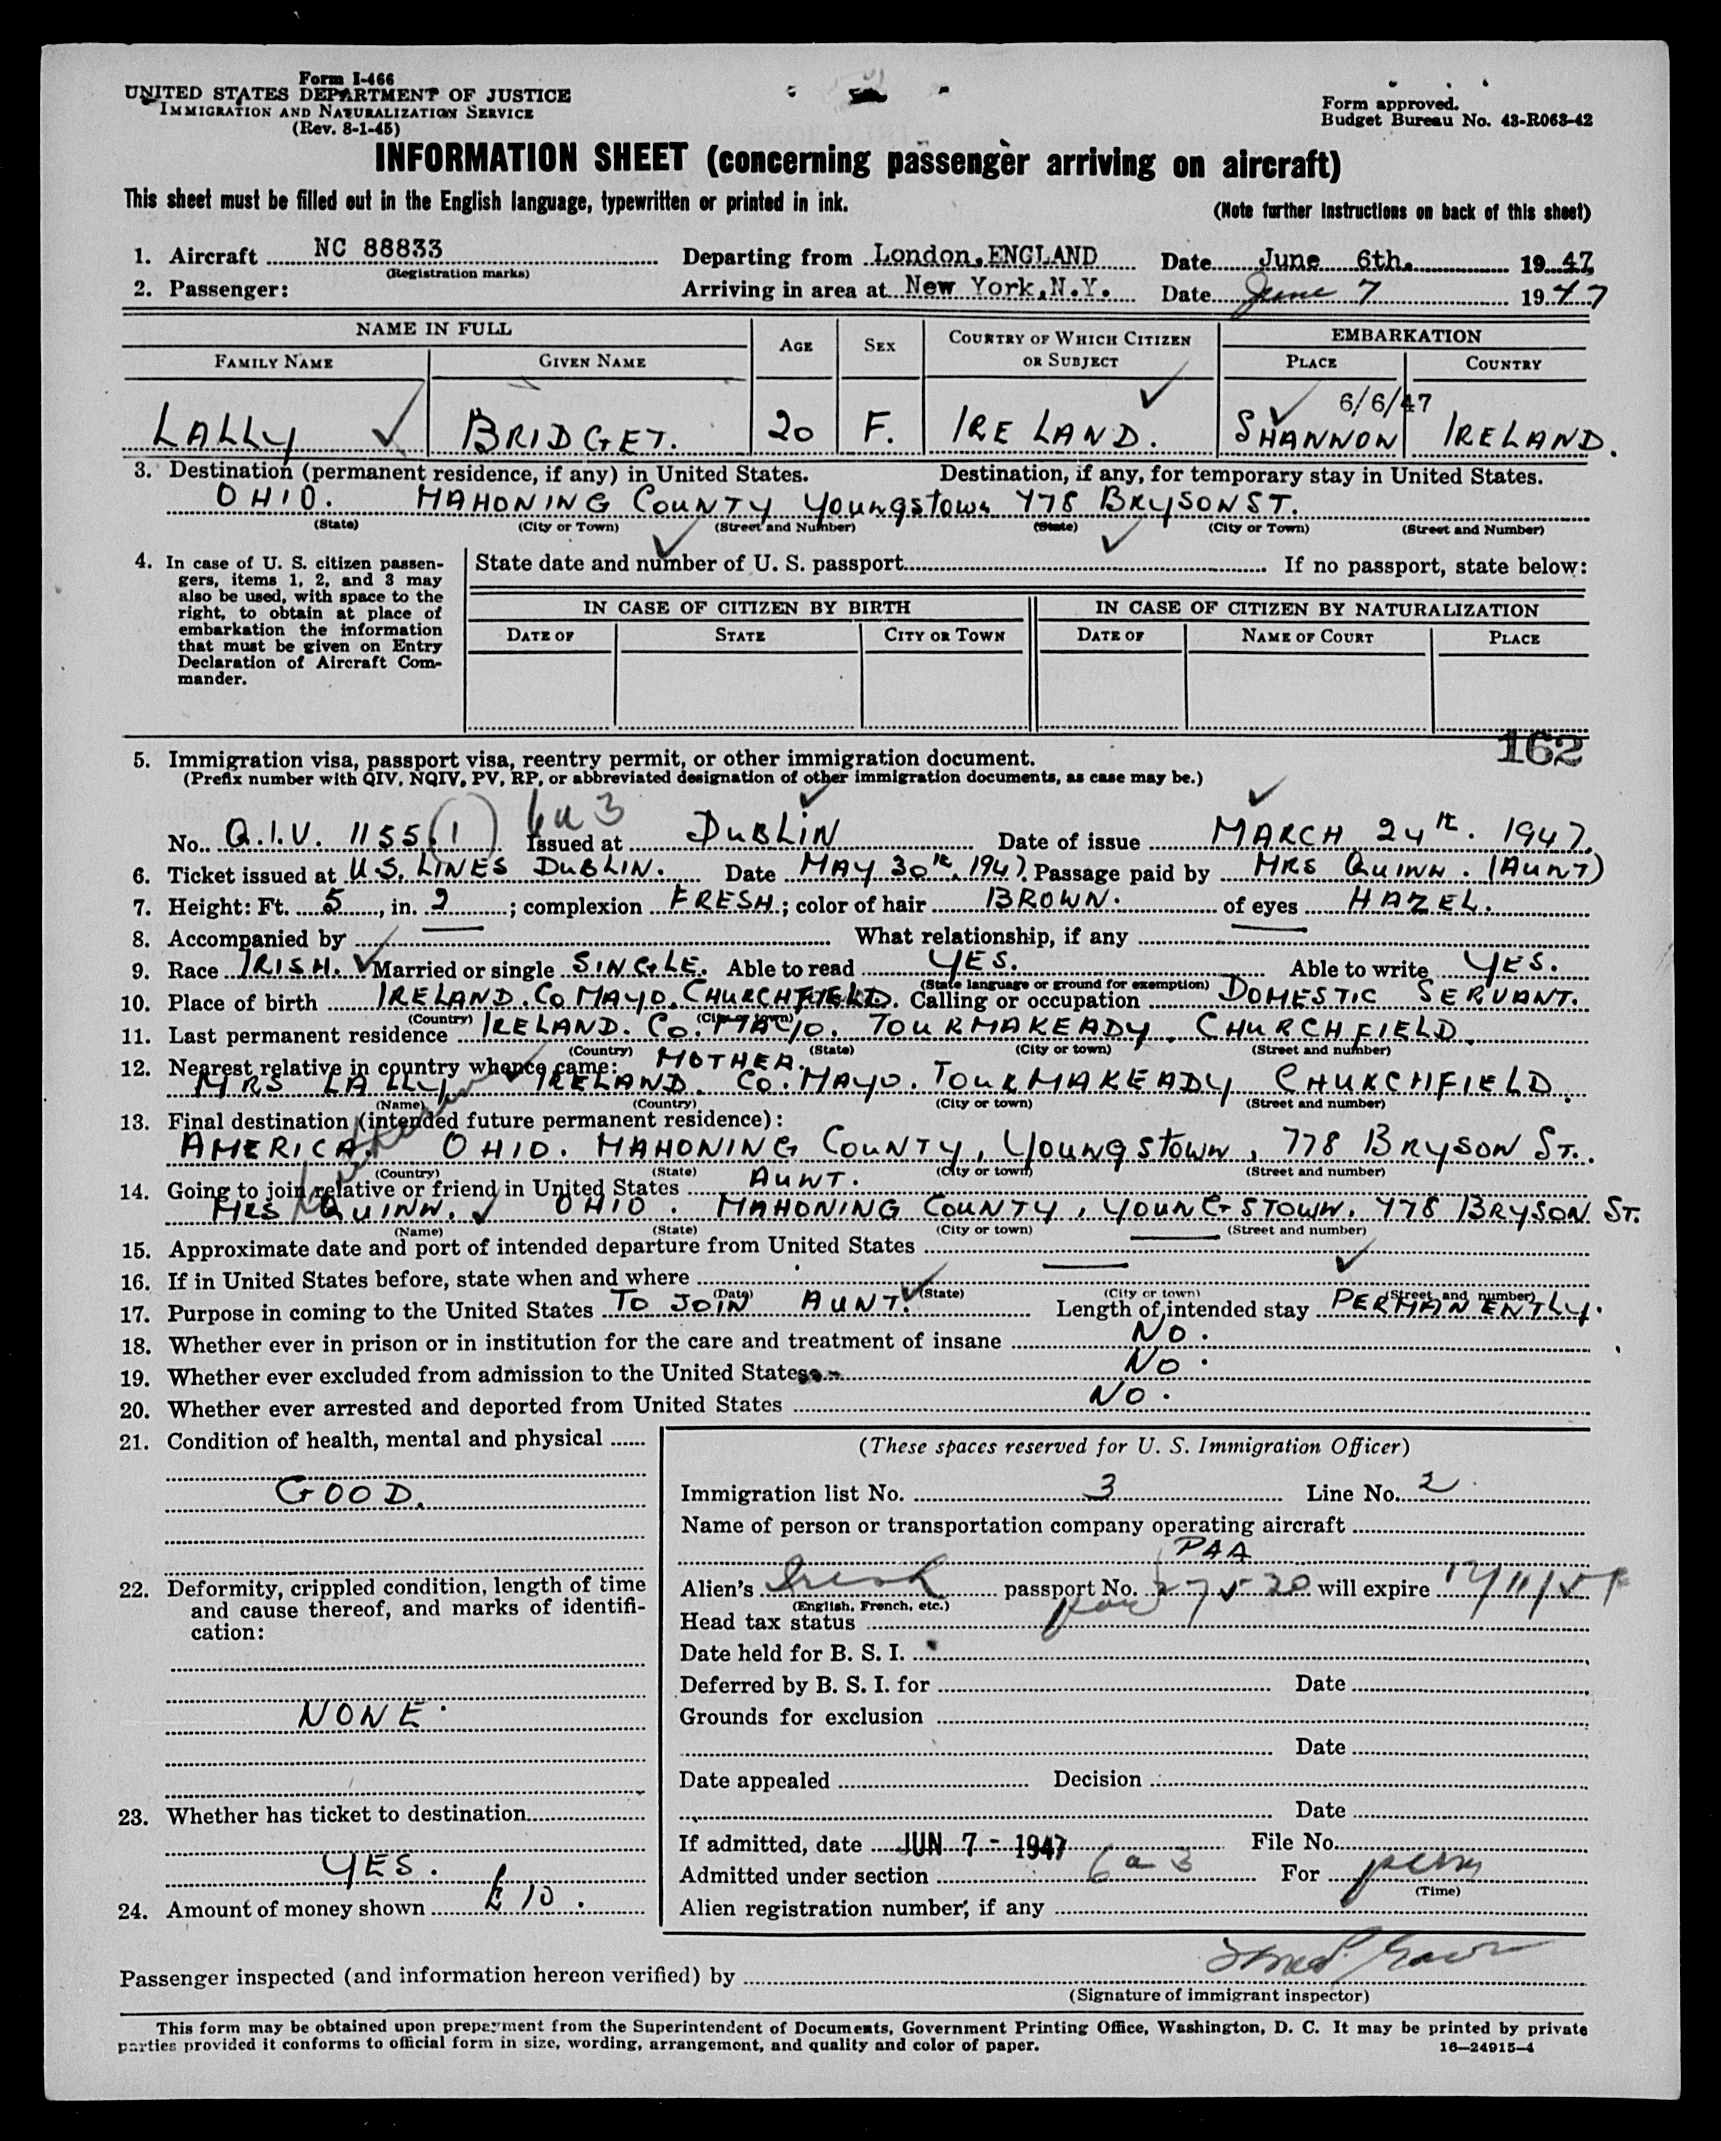 Form I-466
UNITED STATES DEPARTMENT OF JUSTICE
IMMIGRATION AND NATURALIZATION SERVICE
(Rev. 8-1-45)
Form approved.
Budget Bureau No. 43-R063-42
INFORMATION SHEET (concerning passenger arriving on aircraft)
This sheet must be filled out in the English language, typewritten or printed in ink.
(Note further instructions on back of this sheet)
1. Aircraft NC 88833 Departing from London, ENGLAND Date June 6th, 1947
(Registration marks)
2. Passenger: Arriving in area at New York, N.Y. Date June 7 1947
NAME IN FULL AGE SEX COUNTRY OF WHICH CITIZEN OR SUBJECT EMBARKATION
FAMILY NAME GIVEN NAME PLACE COUNTRY
6/6/47
LALLY BRIDGET. 20 F. IRELAND. SHANNON IRELAND.
3. Destination (permanent residence, if any) in United States. Destination, if any, for temporary stay in United States.
OHIO. MAHONING COUNTY Youngstown 778 BRYSON ST.
(State) (City or Town) (Street and Number) (State) (City or Town) (Street and Number)
4. In case of U. S. citizen passengers, items 1, 2, and 3 may also be used, with space to the right, to obtain at place of embarkation the information that must be given on Entry Declaration of Aircraft Commander.
State date and number of U. S. passport If no passport, state below:
IN CASE OF CITIZEN BY BIRTH IN CASE OF CITIZEN BY NATURALIZATION
DATE OF STATE CITY OR TOWN DATE OF NAME OF COURT PLACE
162
5. Immigration visa, passport visa, reentry permit, or other immigration document.
(Prefix number with QIV, NQIV, PV, RP, or abbreviated designation of other immigration documents, as case may be.)
6a3
No. Q.I.V. 1155(1) Issued at DUBLIN Date of issue MARCH 24th. 1947.
6. Ticket issued at U.S. LINES DUBLIN. Date MAY 30th, 1947. Passage paid by MRS QUINN. (AUNT)
7. Height: Ft. 5, in. 2; complexion FRESH.; color of hair BROWN. of eyes HAZEL.
8. Accompanied by — What relationship, if any —
9. Race IRISH. Married or single SINGLE. Able to read YES. Able to write YES.
(State language or ground for exemption)
10. Place of birth IRELAND. CO MAYO. CHURCHFIELD. Calling or occupation DOMESTIC SERVANT.
(Country) (City or town)
11. Last permanent residence IRELAND. CO. MAYO. TOURMAKEADY. CHURCHFIELD.
(Country) (State) (City or town) (Street and number)
12. Nearest relative in country whence came: MOTHER.
MRS LALLY IRELAND. CO. MAYO. TOURMAKEADY CHURCHFIELD.
(Name) (Country) (City or town) (Street and number)
13. Final destination (intended future permanent residence):
AMERICA. OHIO. MAHONING COUNTY, Youngstown, 778 BRYSON ST.
(Country) (State) (City or town) (Street and number)
14. Going to join relative or friend in United States AUNT.
MRS QUINN. OHIO. MAHONING COUNTY, YOUNGSTOWN. 778 BRYSON ST.
(Name) (State) (City or town) (Street and number)
15. Approximate date and port of intended departure from United States —
16. If in United States before, state when and where —
(Date) (State) (City or town) (Street and number)
17. Purpose in coming to the United States TO JOIN AUNT. Length of intended stay PERMANENTLY.
18. Whether ever in prison or in institution for the care and treatment of insane NO.
19. Whether ever excluded from admission to the United States NO.
20. Whether ever arrested and deported from United States NO.
21. Condition of health, mental and physical
GOOD.
22. Deformity, crippled condition, length of time and cause thereof, and marks of identification:
NONE.
23. Whether has ticket to destination
YES.
24. Amount of money shown £10.
(These spaces reserved for U. S. Immigration Officer)
Immigration list No. 3 Line No. 2
Name of person or transportation company operating aircraft
PAA
Alien's Irish passport No. will expire
(English, French, etc.)
Head tax status
Date held for B. S. I.
Deferred by B. S. I. for Date
Grounds for exclusion
Date
Date appealed Decision
Date
If admitted, date JUN 7 - 1947 File No.
Admitted under section 6 a 3 For perm
(Time)
Alien registration number, if any
Passenger inspected (and information hereon verified) by
(Signature of immigrant inspector)
This form may be obtained upon prepayment from the Superintendent of Documents, Government Printing Office, Washington, D. C. It may be printed by private
parties provided it conforms to official form in size, wording, arrangement, and quality and color of paper.
16—24915-4